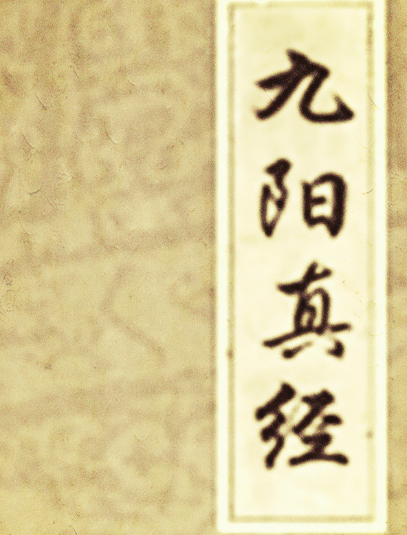 九阳真经